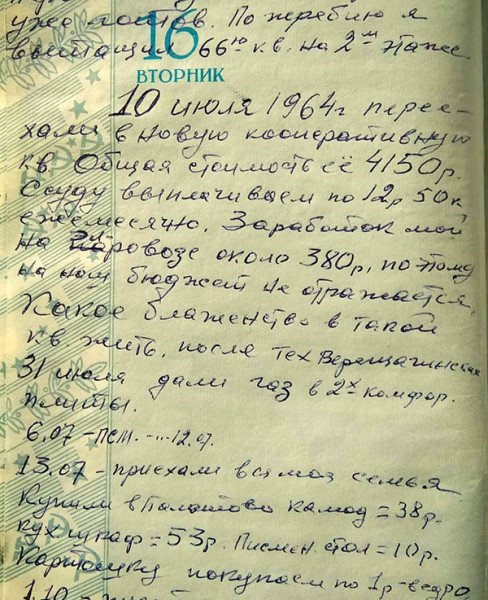 уже гостов. По жребию я
вытащил 66ю кв. на 2м этаже
16
ВТОРНИК
10 июля 1964г перее-
хали в новую кооперативную
кв. Общая стоимость её 4150р.
Ссуду выплачиваем по 12р 50к
ежемесячно. Заработок мой
на паровозе около 380р, поэтому
на наш бюджет не отражается.
Какое блаженство в такой
кв жить, после тех Верещагинских
31 июля дали газ в 2х комфор.
плиты.
6.07 - ПСМ. -...- 12.07.
13.07 - приехали вся моя семья
Купили в комод = 38р.
кух шкаф = 53р. Писмен. стол = 10р.
Картошку покупаем по 1р - ведро
1.10 -